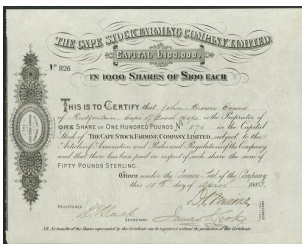 THE CAPE STOCK FARMING COMPANY LIMITED.
CAPITAL £100,000.
IN 1000 SHARES OF £100 EACH
No 826
THIS IS TO CERTIFY that John
of Cape of Good Hope is the Proprietor of
ONE SHARE OF ONE HUNDRED POUNDS No in the Capital
Stock of THE CAPE STOCK FARMING COMPANY, LIMITED, subject to the
Articles of Association and Rules and Regulations of the Company
and that there has been paid in respect of such share the sum of
FIFTY POUNDS STERLING.
Given under the Common Seal of the Company
this day of
REGISTERED
SECRETARY
No transfer of the Shares represented by the Certificate can be registered without production of the Certificate